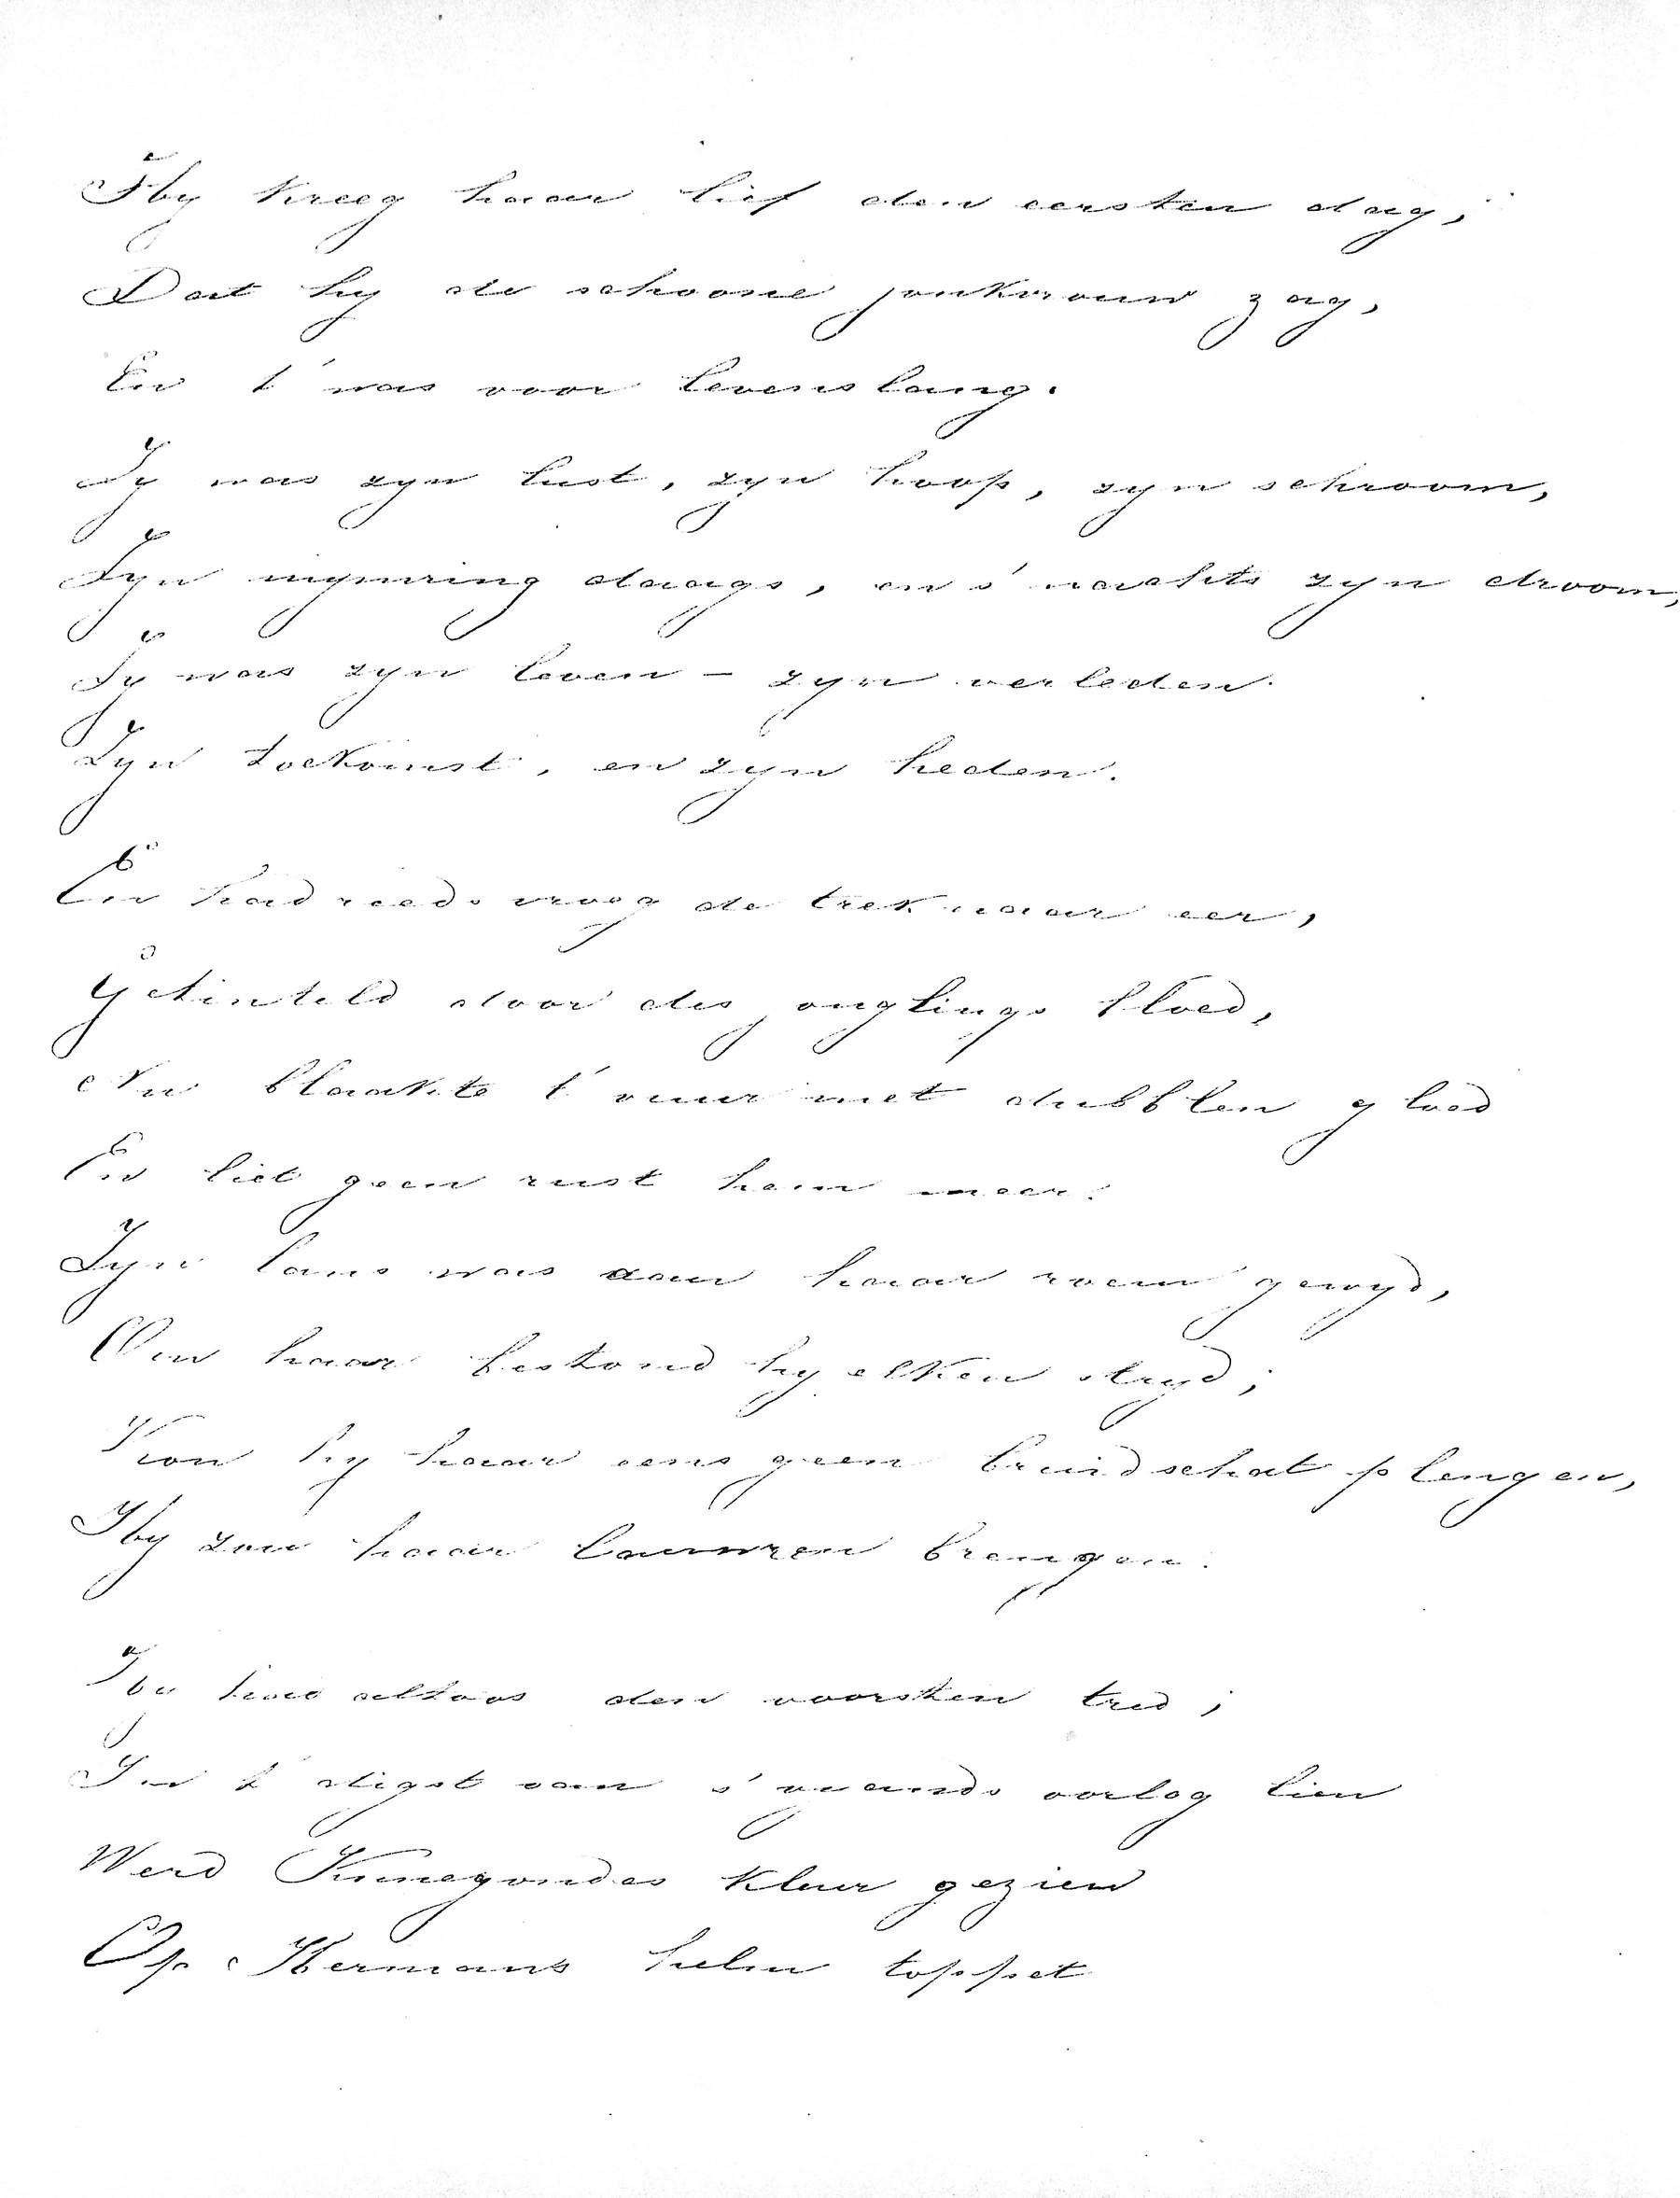 Hy kreeg haar lief den eersten dag,
Dat hy de schoone jonkvrouw zag,
En t' was voor levenslang.
Zy was zyn lust, zyn hoop, zyn schroom,
Zyn mymring daags, en s' nachts zyn droom,
Zy was zyn leven – zyn verleden.
Zyn toekomst, en zyn heden.
En had reeds vroeg de trek naar eer,
Getinteld door des jonglings bloed,
Nu blaakte t' vuur met dubblen gloed
En liet geen rust hem meer.
Zyn lans was aan haar roem gewyd,
Om haar bestond hy elken stryd;
Kon hy haar eens geen bruidschat plengen,
Hy zou haar lauwren brengen.
Hy had altoos den voorsten tred;
In t' digst van s' vyands oorlog lien
Werd Kunegondes kleur gezien
Op Hermans helm toppet